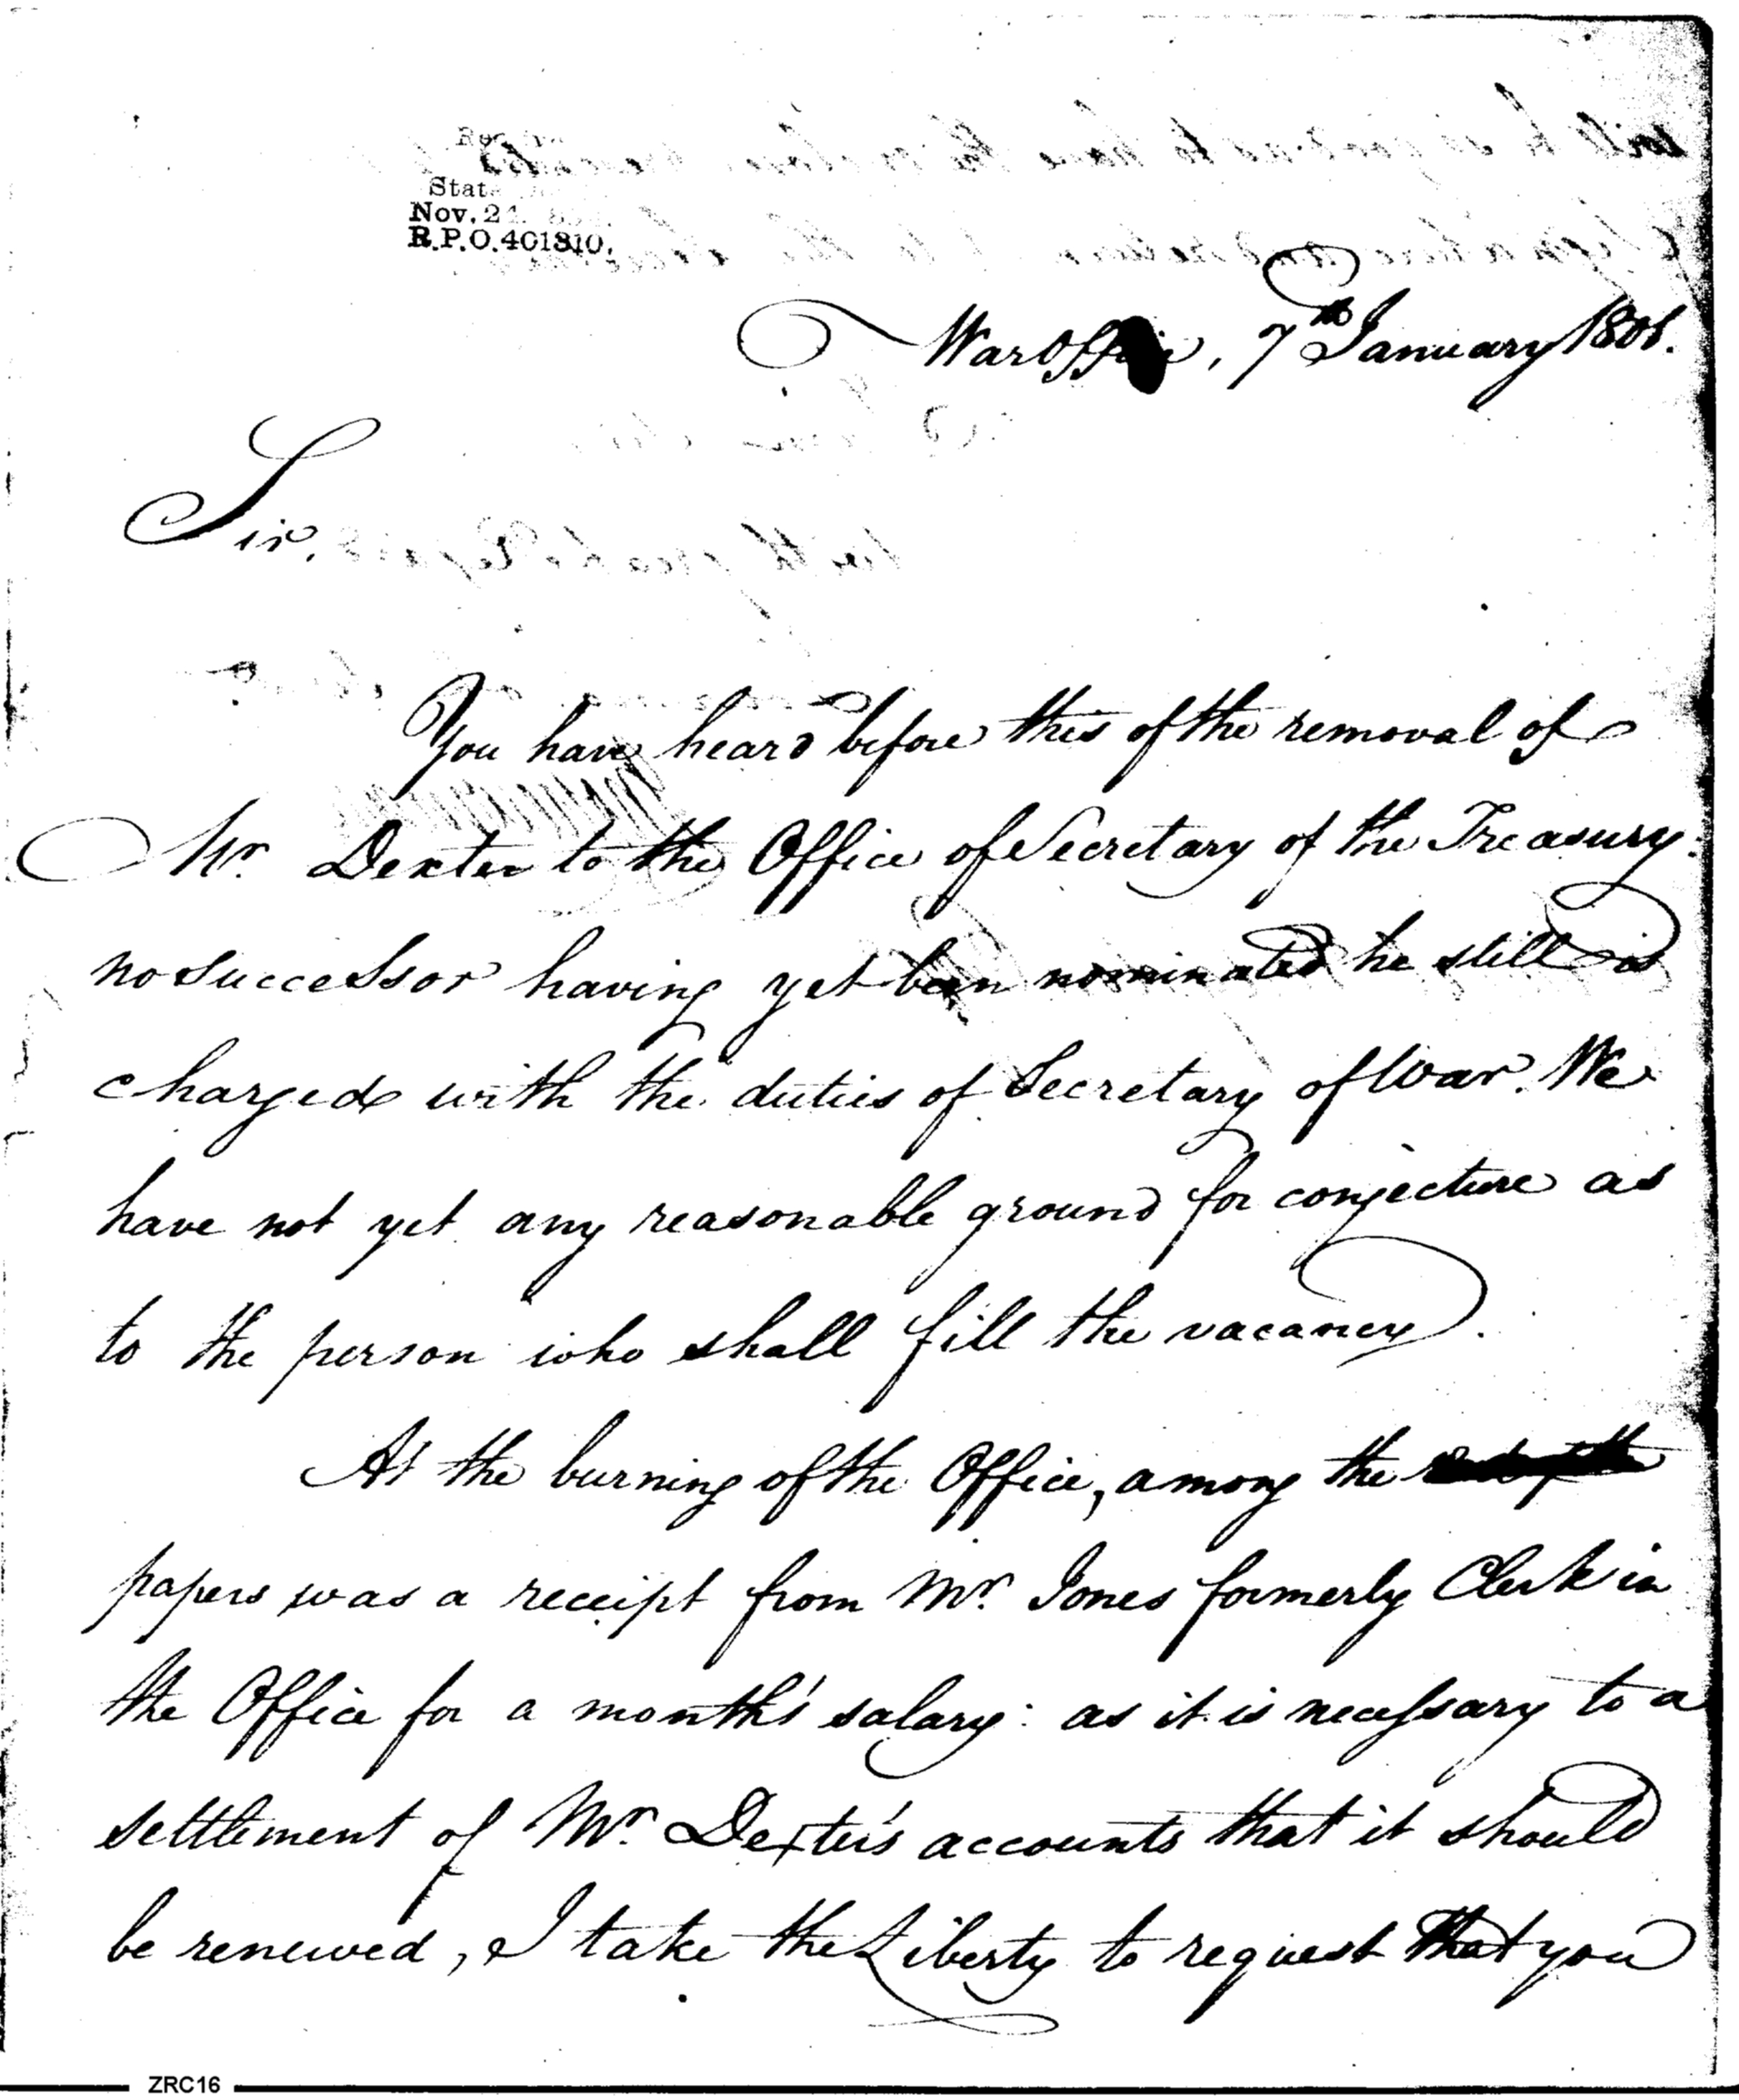 State
Nov. 24
R.P.O. 401310.
War Office, 7th January 1801.
Sir.
You have heard before this of the removal of
Mr. Dexter to the Office of Secretary of the Treasury:
no successor having yet been nominated he still is
charged with the duties of Secretary of War. We
have not yet any reasonable ground for conjecture as
to the person who shall fill the vacancy.
At the burning of the Office, among the
papers was a receipt from Mr. Jones formerly Clerk in
the Office for a month's salary: as it is necessary to a
settlement of Mr. Dexter's accounts that it should
be renewed, I take the Liberty to request that you
ZRC16